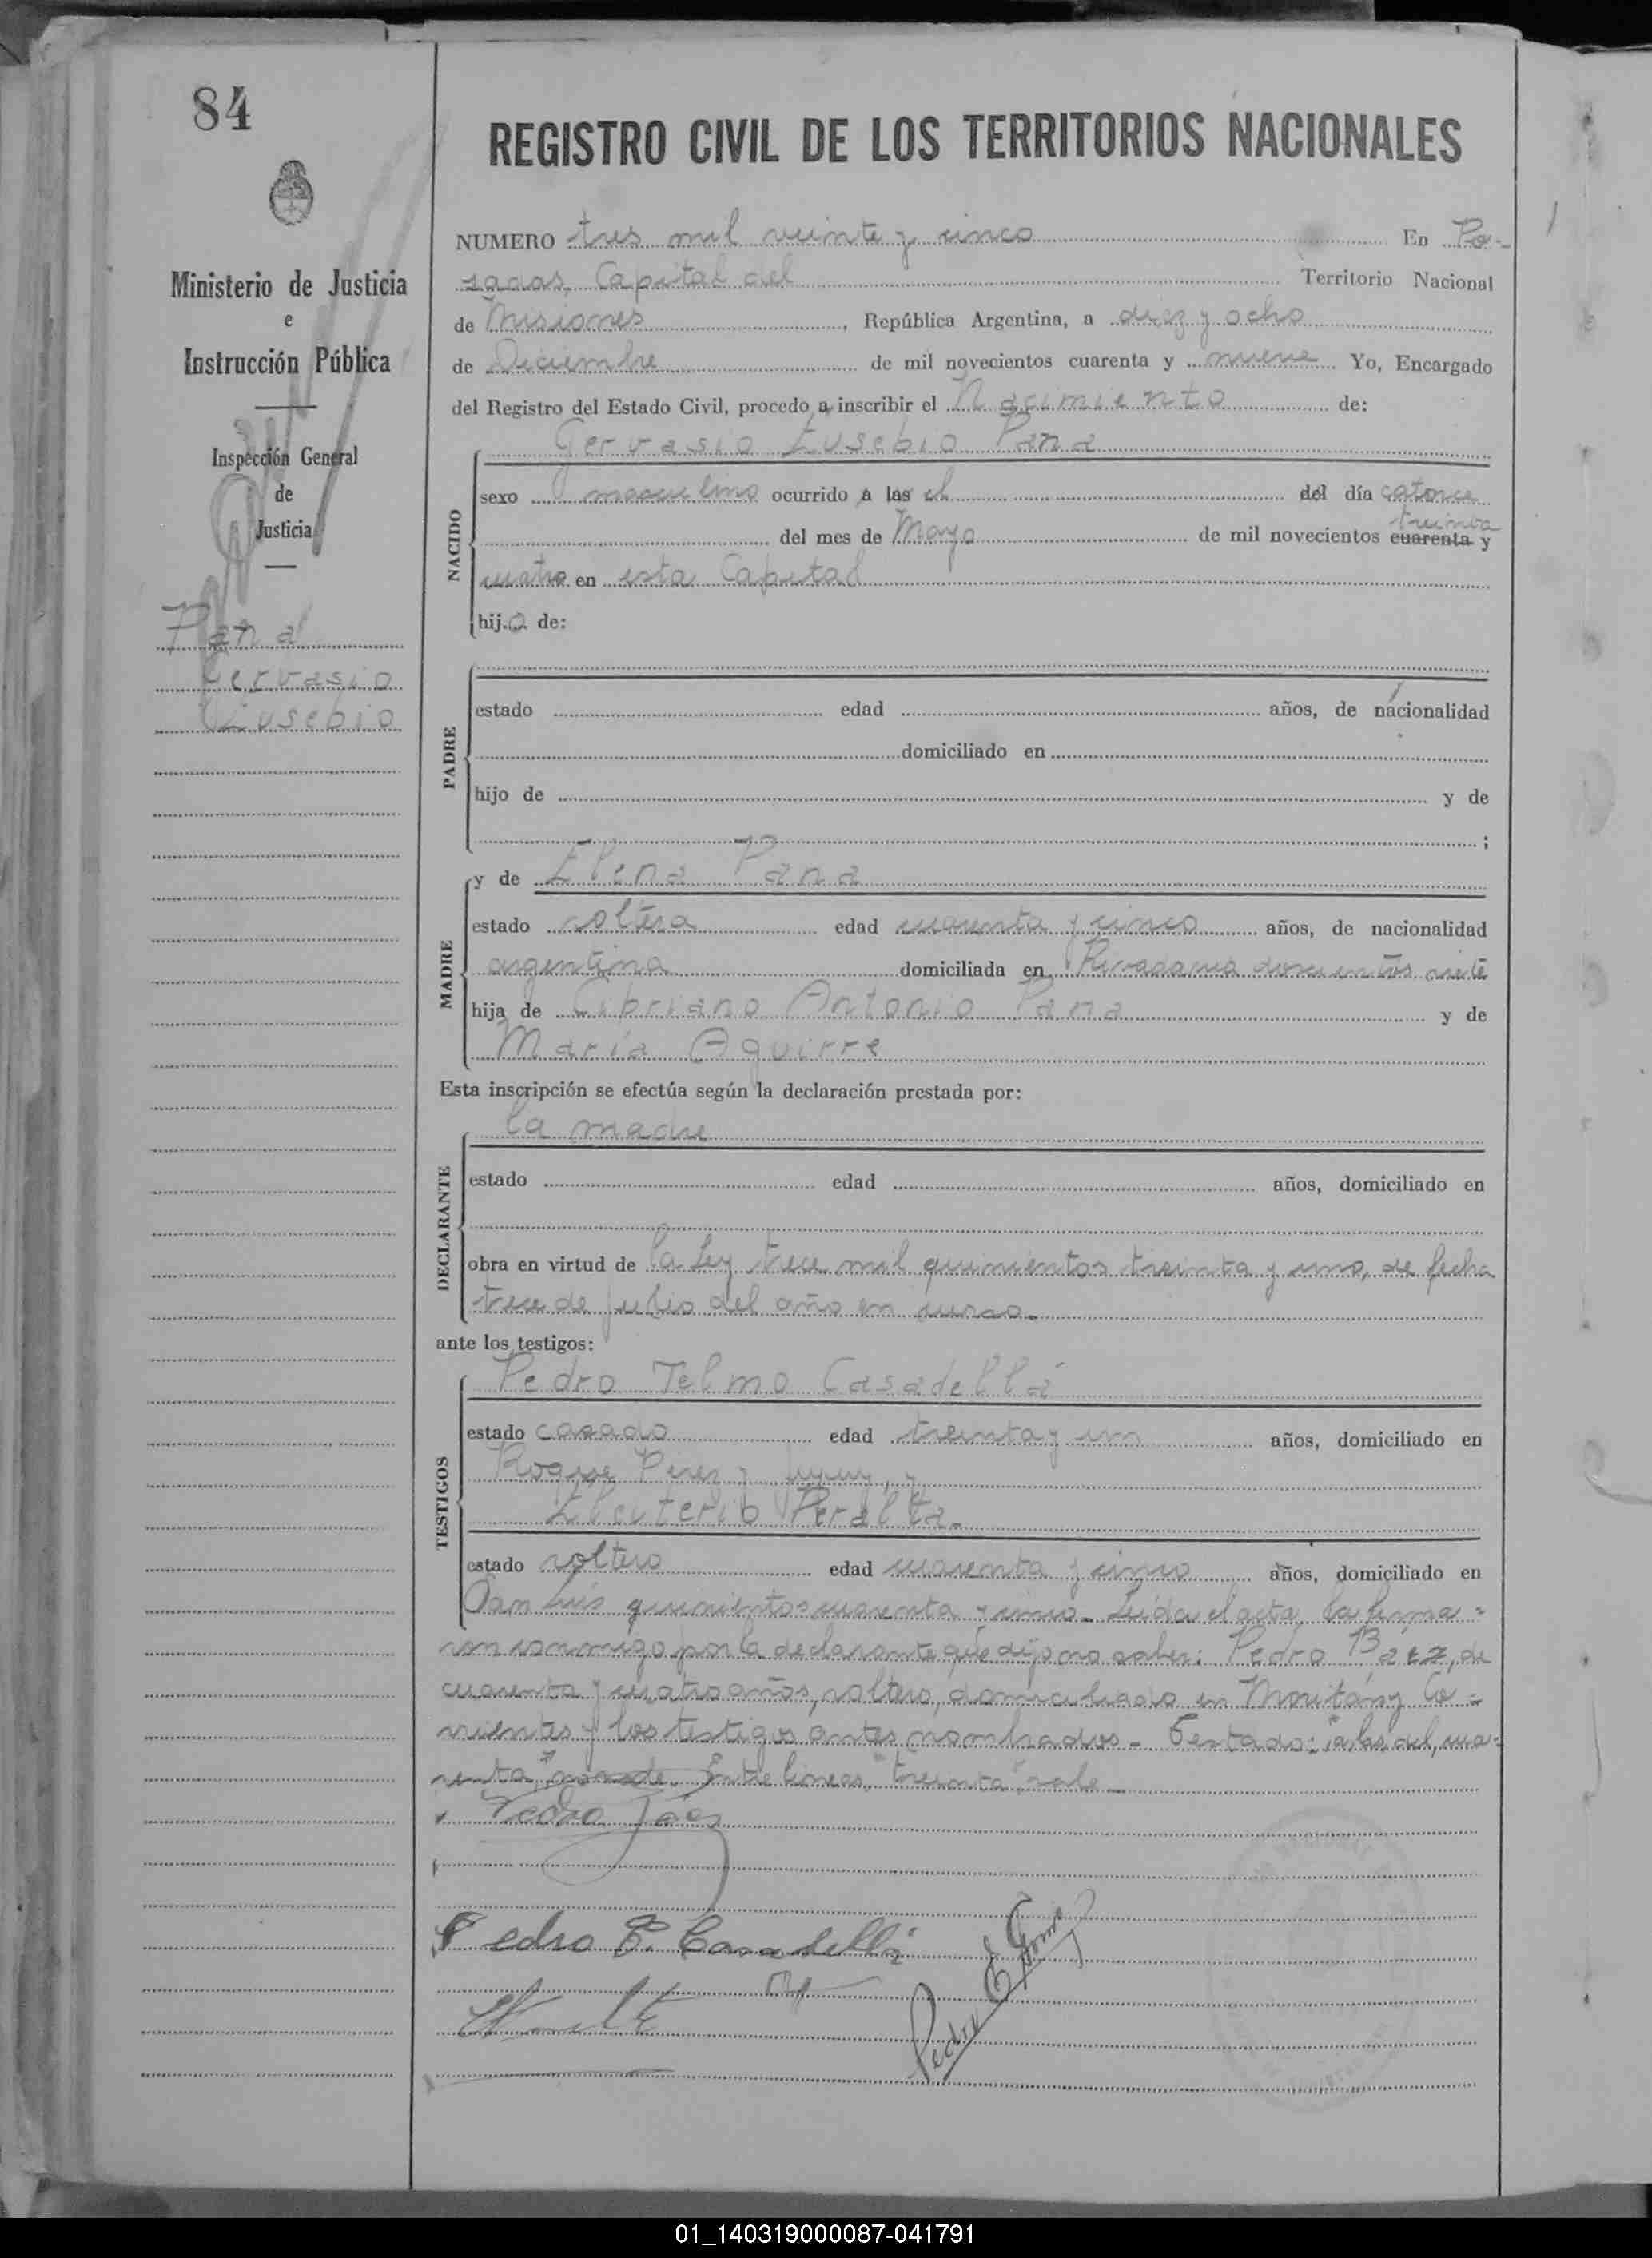 84
Ministerio de Justicia
e
Instrucción Pública
Inspección General
de
Justicia
Pana
Gervasio
Eusebio
REGISTRO CIVIL DE LOS TERRITORIOS NACIONALES
NUMERO tres mil veinte y cinco En Po-
sadas, Capital del Territorio Nacional
de Misiones, República Argentina, a diez y ocho
de Diciembre de mil novecientos cuarenta y nueve Yo, Encargado
del Registro del Estado Civil, procedo a inscribir el Nacimiento de:
Gervasio Eusebio Pana
NACIDO
sexo masculino ocurrido a las el del día catorce
treinta
del mes de Mayo de mil novecientos cuarenta y
cuatro en esta Capital
hijo de:
PADRE
estado edad años, de nacionalidad
domiciliado en
hijo de y de
;
MADRE
y de Elena Pana
estado soltera edad cuarenta y cinco años, de nacionalidad
argentina domiciliada en Rivadavia doscientos siete
hija de Cibriano Antonio Pana y de
María Aguirre
Esta inscripción se efectúa según la declaración prestada por:
DECLARANTE
la madre
estado edad años, domiciliado en
obra en virtud de la Ley trece mil quinientos treinta y uno, de fecha
trece de julio del año en curso.-
ante los testigos:
TESTIGOS
Pedro Telmo Casadellá
estado casado edad treinta y un años, domiciliado en
Roque Perez y Jujuy, y
Eleuterio Peralta.-
estado soltero edad cuarenta y cinco años, domiciliado en
San Luis quinientos cuarenta y cinco.- Leída el acta, la firma=
ron conmigo por la declarante que dijo no saber: Pedro Báez, de
cuarenta y cuatro años, soltero, domiciliado en Moritán y Co=
rrientes y los testigos antes nombrados.- Testado: "a las, del, cua=
renta", no vale. Entre líneas, "treinta", vale.-
Pedro Báez
Pedro T. Casadellá
01_140319000087-041791